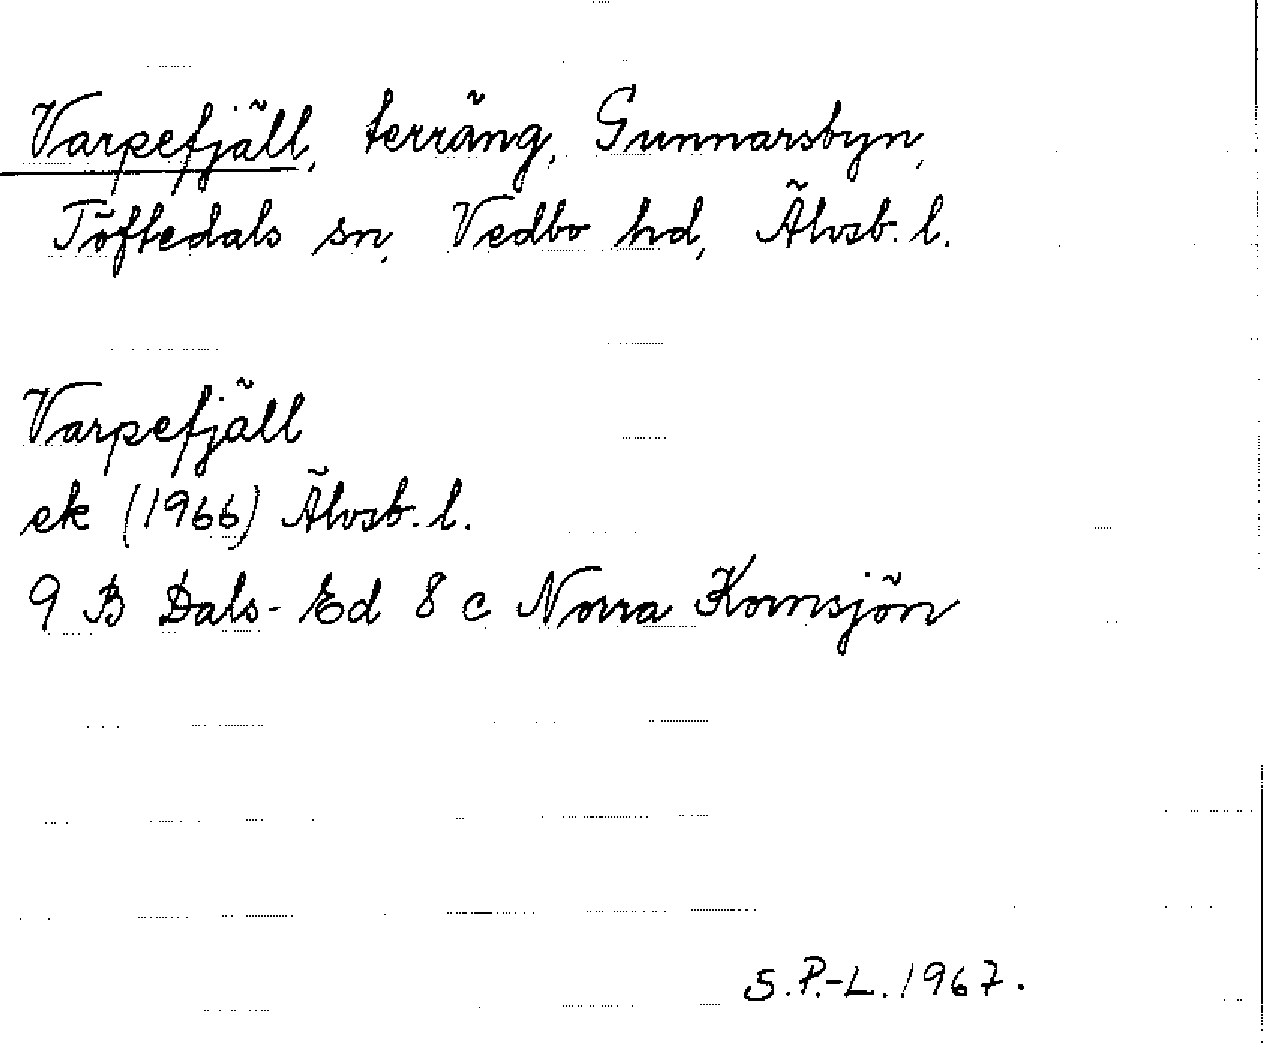 Varpefjäll, terräng, Gunnarsbyn,
Töftedals sn, Vedbo hd, Älvsb. l.
Varpefjäll
ek (1966) Älvsb. l.
9 B Dals-Ed 8 c Norra Kornsjön
S.P.-L. 1967.